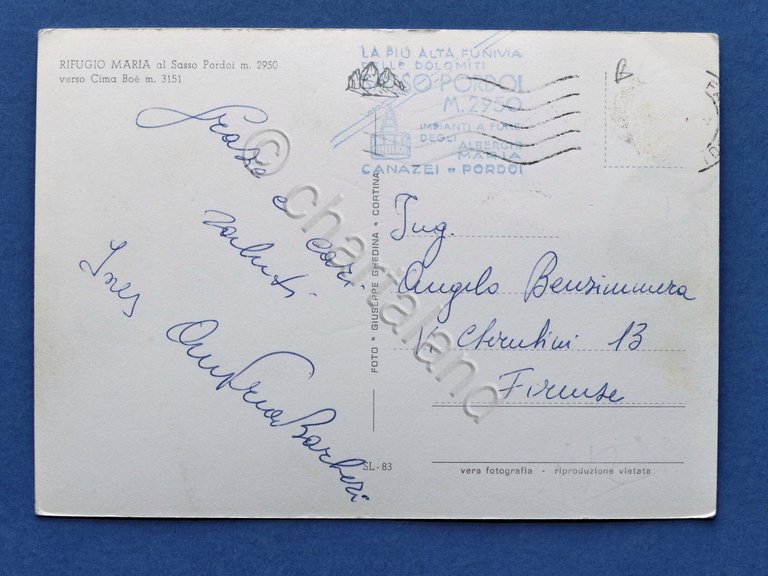 RIFUGIO MARIA al Sasso Pordoi m. 2950
verso Cima Boè m. 3151
LA PIÙ ALTA FUNIVIA
DELLE DOLOMITI
SASSO PORDOI
M. 2950
IMPIANTI A FUNE
DEGLI ALBERGHI
MARIA
CANAZEI - PORDOI
Grazie e cari
saluti
Ines
Barberi
FOTO * GIUSEPPE GHEDINA * CORTINA
Ing.
Angelo
V. Cherubini 13
Firenze
SL - 83
vera fotografia - riproduzione vietata
© chartaland